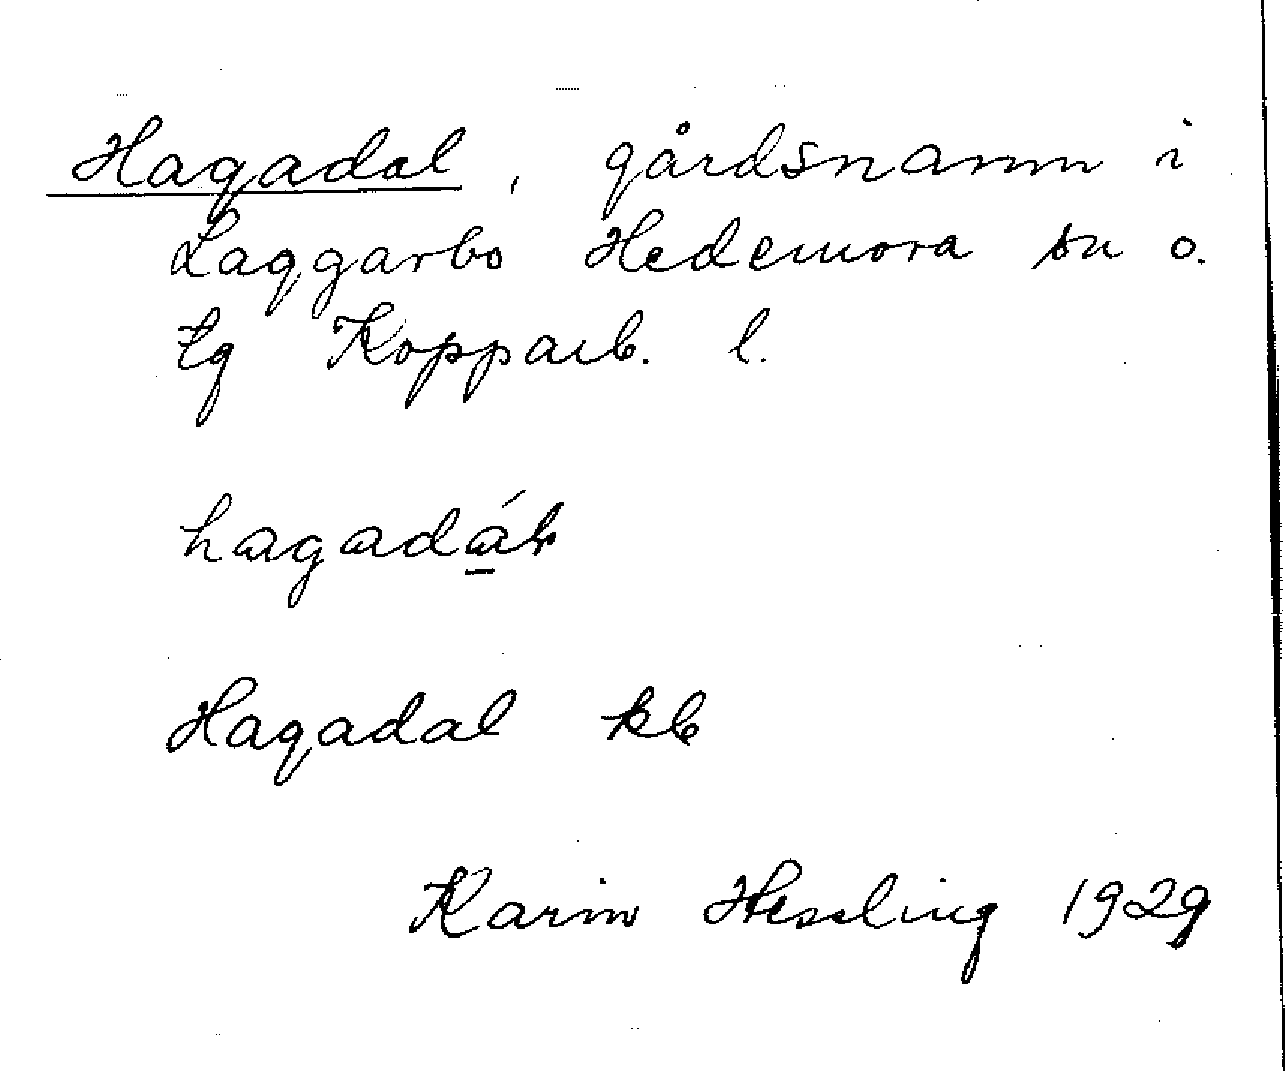 Hagadal, gårdsnamn i
Laggarbo Hedemora sn o.
tg Kopparb. l.
hagadál
Hagadal kb
Karin Hessling 1929